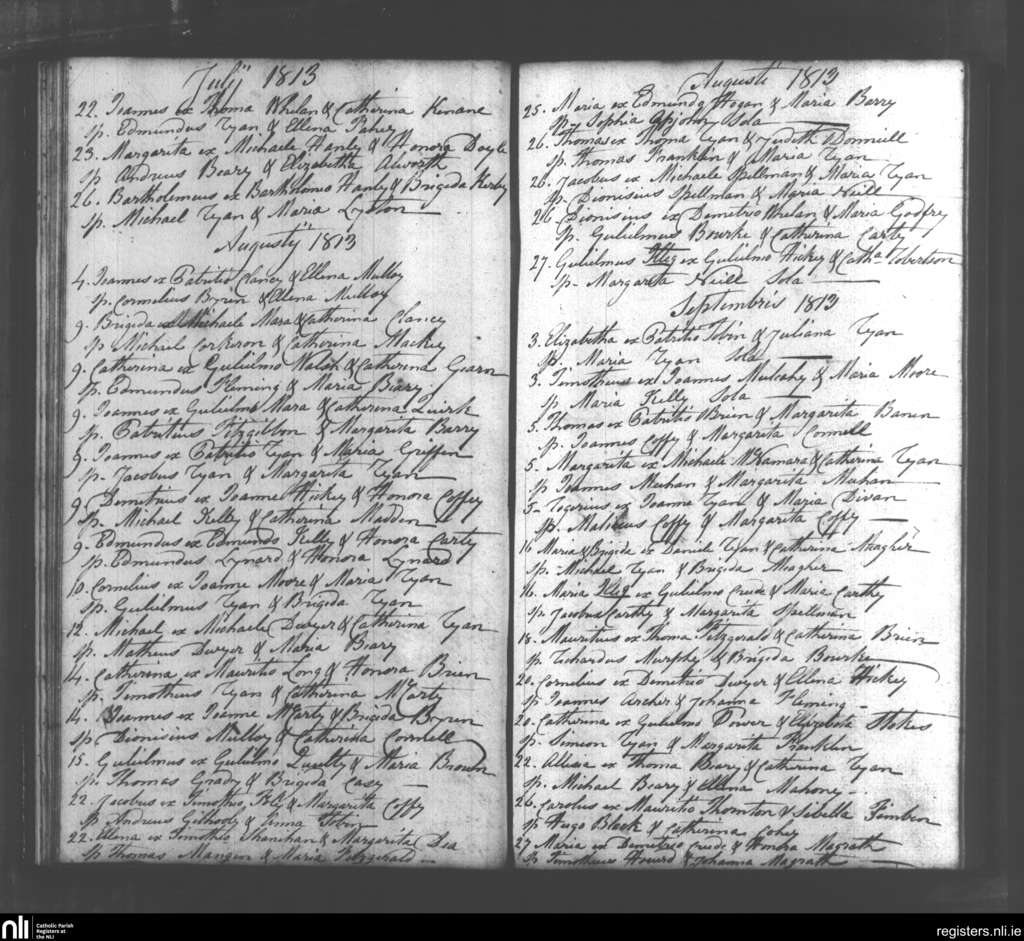 July 1813
22. Joannes ex Thoma Whelan & Catherina Kenane
Sp. Edmundus Ryan & Ellena Fahey
23. Margarita ex Michaele Hanly & Honora Doyle
Sp Andreus Beary & Elizabetha Alworth
26. Bartholemeus ex Bartholomeo Hanly & Brigida Kirby
Sp. Michael Ryan & Maria Lyston
Augustj 1813
4. Joannes ex Patritio Clancy & Ellena Mulloy
Sp. Cornelius Byren & Ellena Mulloy
9. Brigida ex Michaele Mara & Catherina Clancy
Sp Michael Corkeron & Catherina Mackey
9. Catherina ex Gulielmo Walsh & Catherina
Sp. Edmundus Fleming & Maria Beary
9. Joannes ex Gulielmo Mara & Catherina Quirk
Sp. Patritius Fitzgibbon & Margarita Barry
9. Joannes ex Patritio Ryan & Maria Griffin
Sp. Jacobus Ryan & Margarita Ryan
9. Demetrius ex Joanne Hickey & Honora Coffey
Sp. Michael Kelly & Catherina Madden
9. Edmundus ex Edmundo Kelly & Honora Carty
Sp. Edmundus Lynard & Honora Lynard
10. Cornelius ex Joanne Moore & Maria Ryan
Sp. Gulielmus Ryan & Brigida Ryan
12. Michael ex Michaele Dwyer & Catherina Ryan
Sp. Matheus Dwyer & Maria Beary
14. Catherina ex Mauritio Long & Honora Brien
Sp. Timotheus Ryan & Catherina McCarty
14. Joannes ex Joanne McCarty & Brigida Byren
Sp Dionisius Mulloy & Catherina Connell
15. Gulielmus ex Gulielmo Quilty & Maria Brown
Sp. Thomas Grady & Brigida Casy
22. Jacobus ex Timotheo & Margarita Coffy
Sp Andreus & Anna Tobin
22. Ellena ex Timotheo Shanehan & Margarita Dea
Sp Thomas Mangin & Maria Fitzgerald
Augusti 1813
25. Maria ex Edmundo Hogan & Maria Barry
Sp. Sophia Upjohn Sola
26. Thomas ex Thoma Ryan & Judith Donnell
Sp. Thomas Franklin & Maria Ryan
26. Jacobus ex Michaele Spillman & Maria Ryan
Sp. Dionisius Spillman & Maria Neill
26 Dionisius ex Demetrio Whelan & Maria Godfry
Sp. Gulielmus Bourke & Catherina Carty
27. Gulielmus Illeg ex Gulielmo Hickey & Catha Robertson
Sp. Margareta Neill Sola
Septembris 1813
3. Elizabetha ex Patritio Tobin & Juliana Ryan
Sp. Maria Ryan Sola
3. Timotheus ex Joannes Mulcahy & Maria Moore
Sp Maria Kelly Sola
5. Thomas ex Patritio OBrien & Margarita
Sp. Joannes Coffy & Margarita Connell
5. Margarita ex Michaele McNamara & Catherina Ryan
Sp Joannes Meehan & Margarita Meehan
5. Rogerius ex Joanne Ryan & Maria Divan
Sp. Matheus Coffy & Margarita Coffy
16 Maria & Brigida ex Daniele Ryan & Catherina Meagher
Sp. Michael Ryan & Brigida Meagher
16. Maria Illeg ex Gulielmo & Maria Carthy
Sp. Jacobus Carthy & Margarita Spellman
18. Mauritius ex Thoma Fitzgerald & Catherina Brien
Sp. Richardus Murphy & Brigida Bourke
20. Cornelius ex Demetrio Dwyer & Ellena Hickey
Sp Joannes Archer & Johanna Fleming
20. Catherina ex Gulielmo Power & Elizabeta Stokes
Sp. Simeon Ryan & Margarita Franklin
22. Allicia ex Thoma Beary & Catherina Ryan
Sp. Michael Beary & Ellena Mahony
26. Carolus ex Mauritio Thornton & Sibella
Sp Hugo Black & Catherina
27 Maria ex Demetrio & Honora Magrath
Sp Timotheus & Johanna Magrath
nli Catholic Parish
Registers at
the NLI
registers.nli.ie